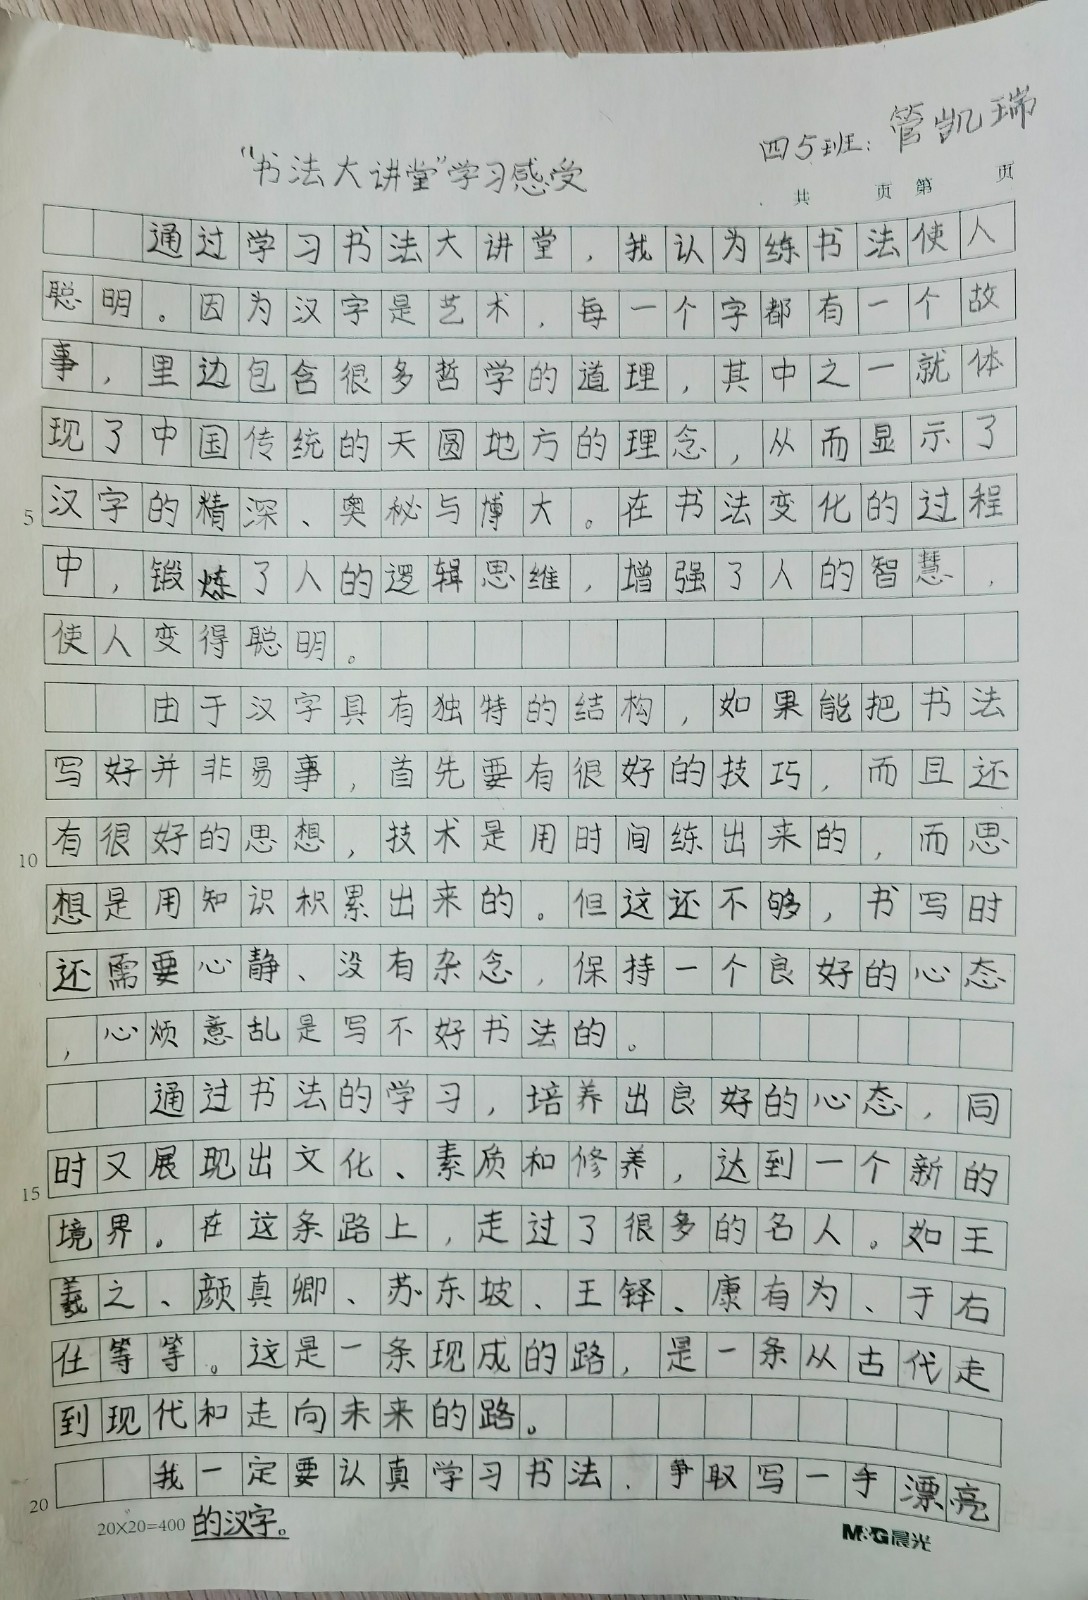 四5班：管凯瑞
"书法大讲堂"学习感受
共 页 第 页
通过学习书法大讲堂，我认为练书法使人
聪明。因为汉字是艺术，每一个字都有一个故
事，里边包含很多哲学的道理，其中之一就体
现了中国传统的天圆地方的理念，从而显示了
5 汉字的精深、奥秘与博大。在书法变化的过程
中，锻炼了人的逻辑思维，增强了人的智慧，
使人变得聪明。
由于汉字具有独特的结构，如果能把书法
写好并非易事，首先要有很好的技巧，而且还
10 有很好的思想，技术是用时间练出来的，而思
想是用知识积累出来的。但这还不够，书写时
还需要心静、没有杂念，保持一个良好的心态
，心烦意乱是写不好书法的。
通过书法的学习，培养出良好的心态，同
15 时又展现出文化、素质和修养，达到一个新的
境界。在这条路上，走过了很多的名人。如王
羲之、颜真卿、苏东坡、王铎、康有为、于右
任等等。这是一条现成的路，是一条从古代走
到现代和走向未来的路。
20 我一定要认真学习书法，争取写一手漂亮
20×20=400 的汉字。
M&G晨光